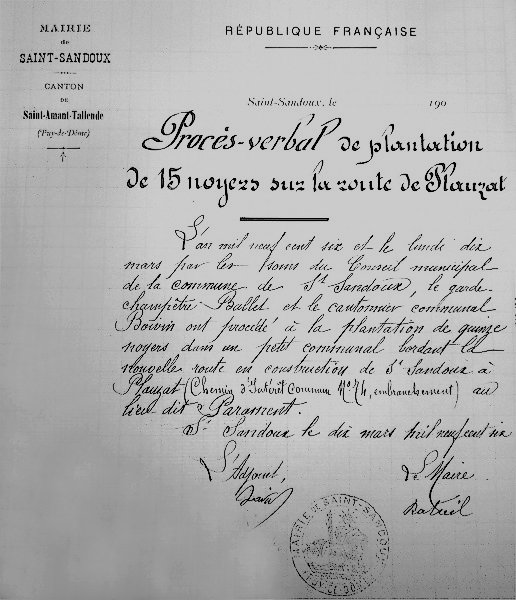 MAIRIE
de
SAINT-SANDOUX
CANTON
DE
Saint-Amant-Tallende
(Puy-de-Dôme)
RÉPUBLIQUE FRANÇAISE
Saint-Sandoux, le 190
Procès-verbal de plantation
de 15 noyers sur la route de Plauzat
L'an mil neuf cent six et le lundi dix
mars par les soins du Conseil municipal
de la commune de St Sandoux, le garde-
champêtre Ballet et le cantonnier communal
Boivin ont procédé à la plantation de quinze
noyers dans un petit communal bordant la
nouvelle route en construction de St Sandoux à
Plauzat (Chemin d'Intérêt Commun No 74, embranchement) au
lieu dit Parament.
St Sandoux le dix mars mil neuf cent six
L'Adjoint, Le Maire
MAIRIE DE SAINT-SANDOUX
PUY-DE-DÔME